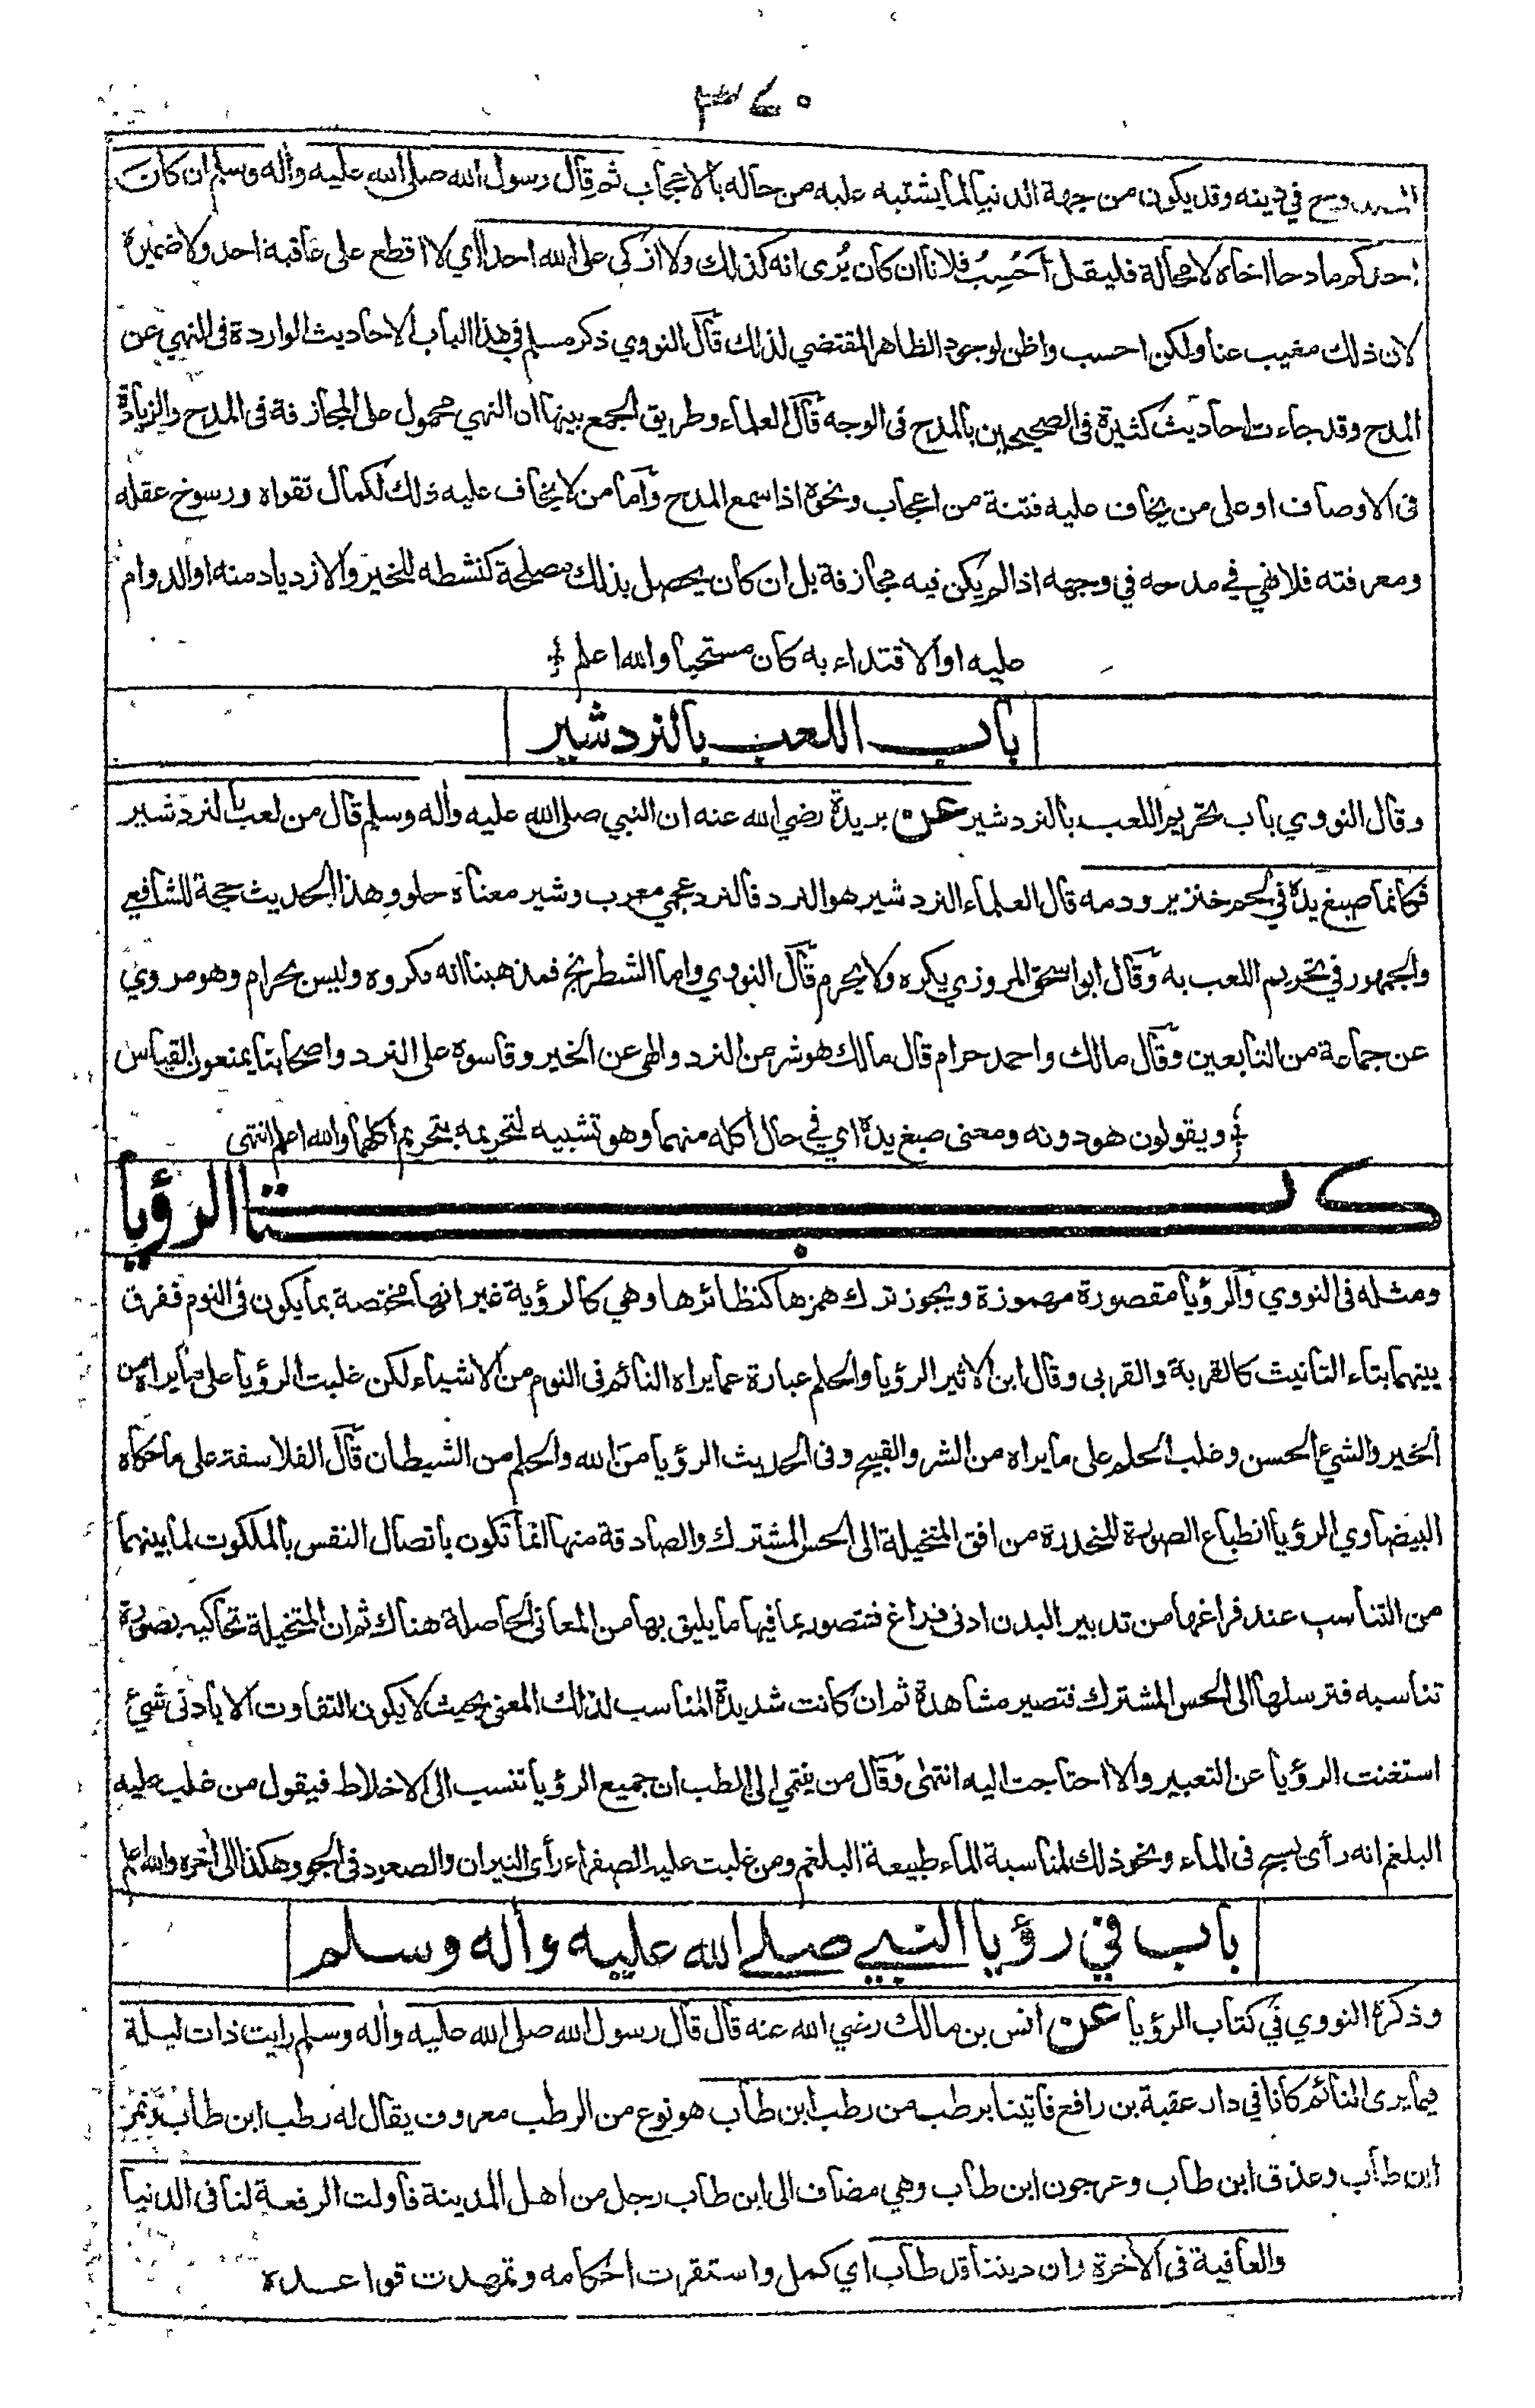 ٣٧٠
الممدوح في دينه وقد يكون من جهة الدنيا لما يشتبه عليه من حاله بالاعجاب ثم قال رسول الله صلى الله عليه وأله وسلم ان كان
احدكم مادحا اخاه لا محالة فليقل أَحْسِبُ فلانا ان كان يُرى انه كذلك ولا ازكي على الله احدا اي لا اقطع على عاقبة احد ولا ضميرة
لان ذلك مغيب عنا ولكن احسب واظن لوجود الظاهر المقتضي لذلك قال النووي ذكر مسلم في هذا الباب الاحاديث الواردة فى النهي عن
المدح وقد جاءت احاديث كثيرة فى الصحيحين بالمدح فى الوجه قال العلماء وطريق الجمع بينها ان النهي محمول على المجازفة فى المدح والزيادة
فى الاوصاف او على من يخاف عليه فتنة من اعجاب ونحوه اذا سمع المدح واما من لا يخاف عليه ذلك لكمال تقواه ورسوخ عقله
ومعرفته فلا نهي في مدحه في وجهه اذا لم يكن فيه مجازفة بل ان كان يحصل بذلك مصلحة كنشطه للخير والازدياد منه او الدوام
عليه او الاقتداء به كان مستحبا والله اعلم
باب اللعب بالنردشير
وقال النووي باب تحريم اللعب بالنردشير عن بريدة رضي الله عنه ان النبي صلى الله عليه وأله وسلم قال من لعب بالنردشير
فكانما صبغ يده في لحم خنزير ودمه قال العلماء النردشير هو النرد فالنرد عجمي معرب وشير معناه حلو وهذا الحديث حجة للشافعي
والجمهور في تحريم اللعب به وقال ابو اسحق المروزي يكره ولا يحرم قال النووي واما الشطرنج فمذهبنا انه مكروه وليس بحرام وهو مروي
عن جماعة من التابعين وقال مالك واحمد حرام قال مالك هو شر من النرد والهى عن الخير وقاسوه على النرد واصحابنا يمنعون القياس
ويقولون هو دونه ومعنى صبغ يده اي في حال اكله منهما وهو تشبيه لتحريمه بتحريم اكلهما والله اعلم انتهى
كتاب الرؤيا
ومثله فى النووي والرؤيا مقصورة مهموزة ويجوز ترك همزها كنظائرها وهي كالرؤية غير انها مختصة بما يكون فى النوم ففرق
بينهما بتاء التانيث كالقربة والقربى وقال ابن الاثير الرؤيا والحلم عبارة عما يراه النائم فى النوم من الاشياء لكن غلبت الرؤيا على ما يراه من
الخير والشيء الحسن وغلب الحلم على ما يراه من الشر والقبيح وفى الحديث الرؤيا من الله والحلم من الشيطان قال الفلاسفة على ما حكاه
البيضاوي الرؤيا انطباع الصورة المنحدرة من افق المتخيلة الى الحس المشترك والصادقة منها انما تكون باتصال النفس بالملكوت لما بينهما
من التناسب عند فراغها من تدبير البدن ادنى فراغ فتتصور بما فيها ما يليق بها من المعانى الحاصلة هناك ثم ان المتخيلة تحاكيه بصورة
تناسبه فترسلها الى الحس المشترك فتصير مشاهدة ثم ان كانت شديدة المناسب لذلك المعنى بحيث لا يكون التفاوت الا بادنى شيء
استغنت الرؤيا عن التعبير والا احتاجت اليه انتهى وقال من ينتمي الى الطب ان جميع الرؤيا تنسب الى الاخلاط فيقول من غلب عليه
البلغم انه رأى يسبح فى الماء ونحو ذلك لمناسبة الماء طبيعة البلغم ومن غلبت عليه الصفراء رأى النيران والصعود فى الجو وهكذا الى اخره والله اعلم
باب في رؤيا النبي صلى الله عليه وأله وسلم
وذكرة النووي في كتاب الرؤيا عن انس بن مالك رضي الله عنه قال قال رسول الله صلى الله عليه وأله وسلم رايت ذات ليلة
فيما يرى النائم كانا في دار عقبة بن رافع فاتينا برطب من رطب ابن طاب هو نوع من الرطب معروف يقال له رطب ابن طاب وتمر
ابن طاب وعذق ابن طاب وعرجون ابن طاب وهي مضاف الى ابن طاب رجل من اهل المدينة فاولت الرفعة لنا فى الدنيا
والعافية فى الأخرة وان ديننا قد طاب اي كمل واستقرت احكامه وتمهدت قواعده